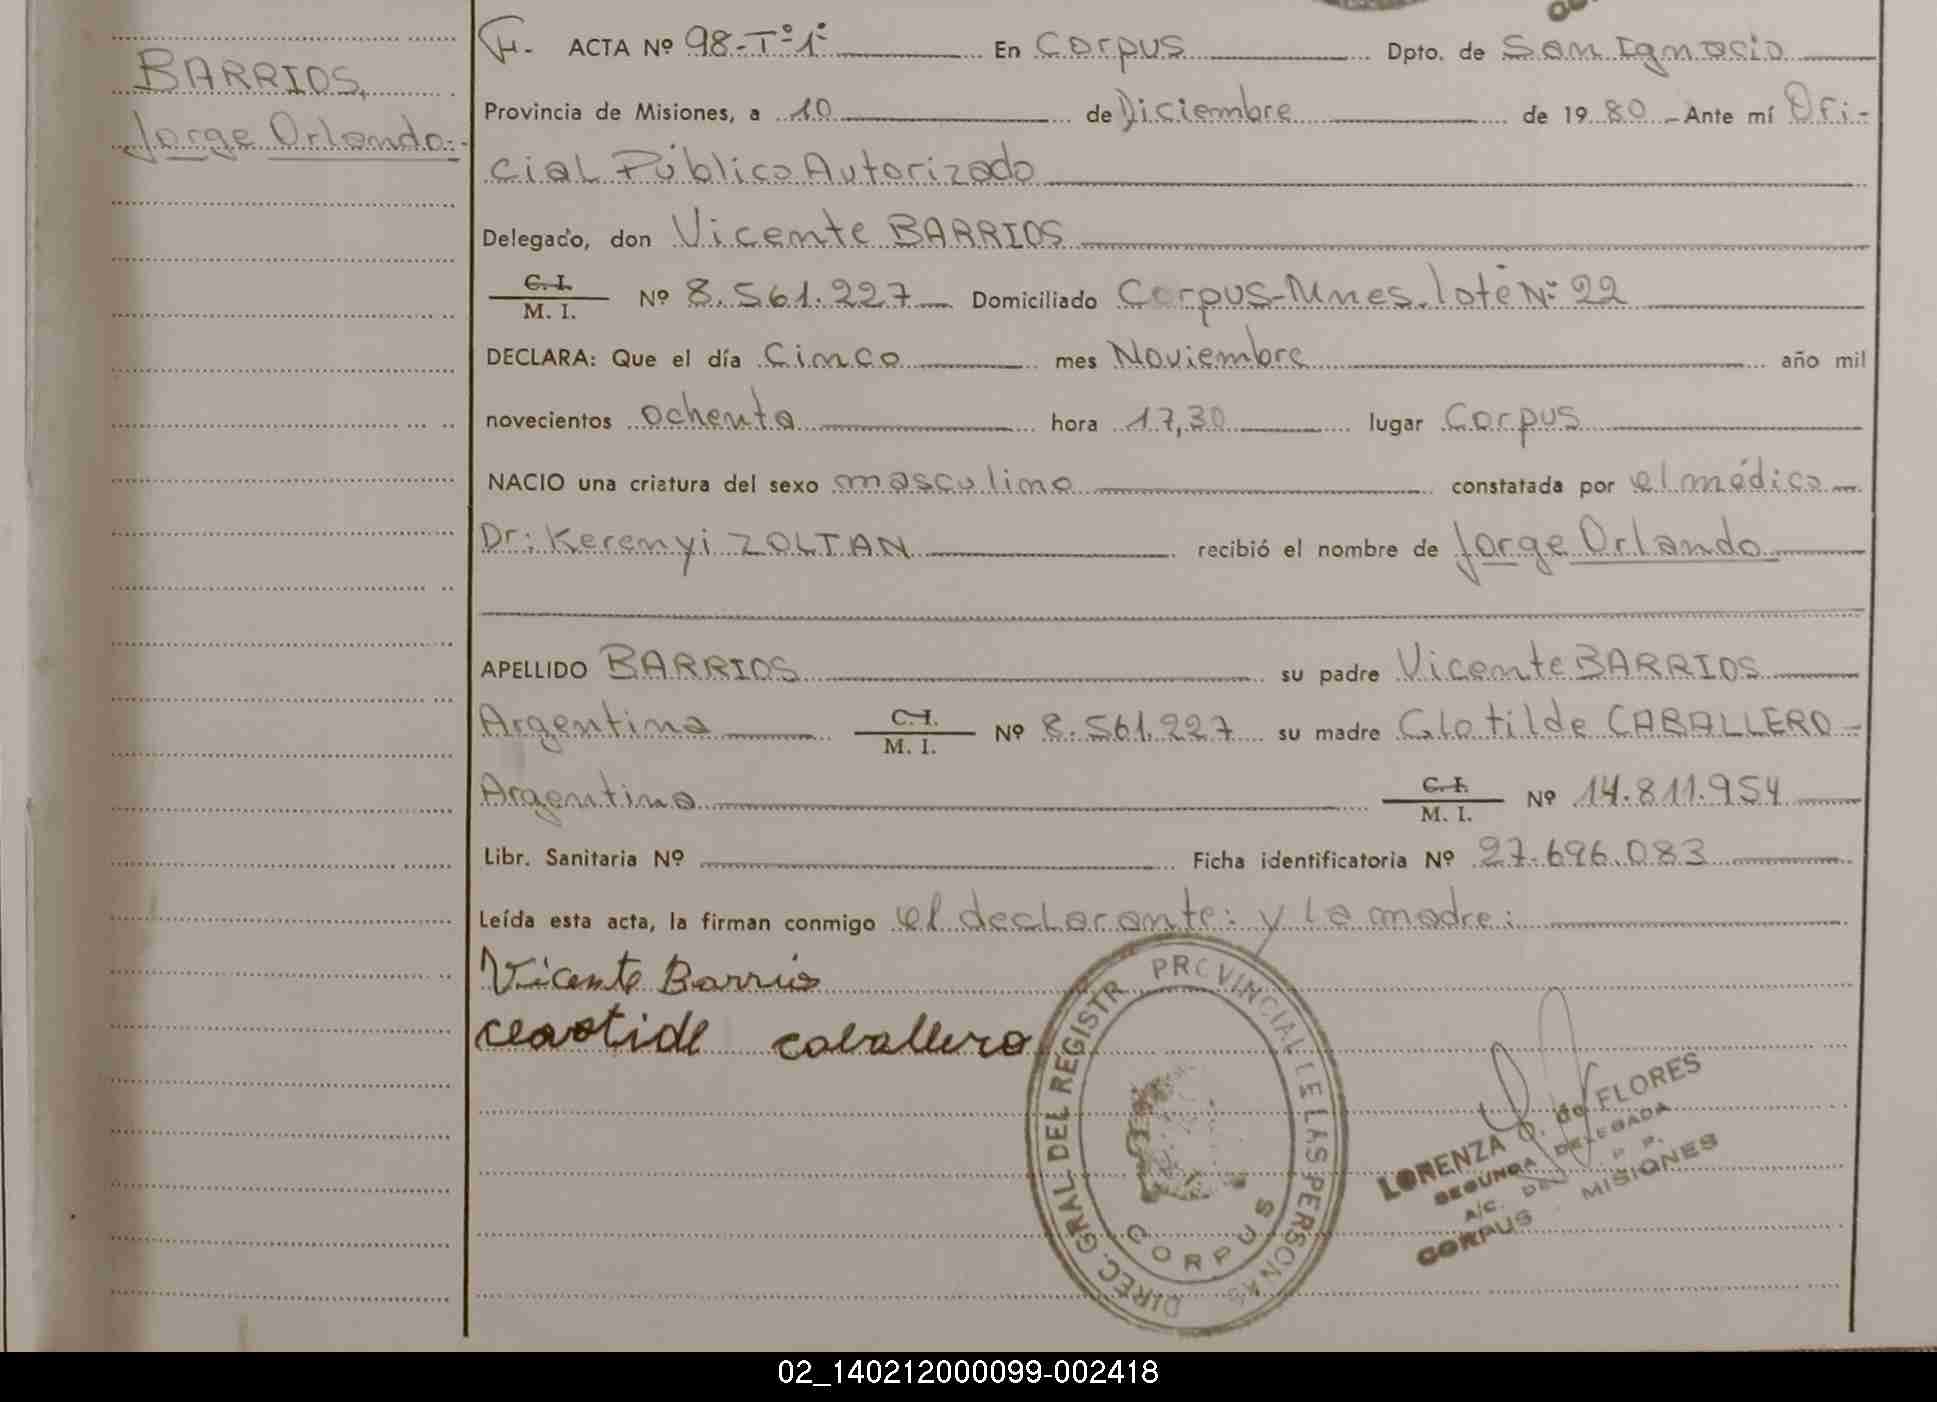 BARRIOS,
Jorge Orlando.-
ACTA Nº 98-Tº1º En Corpus Dpto. de San Ignacio
Provincia de Misiones, a 10 de Diciembre de 1980 - Ante mí Ofi-
cial Público Autorizado
Delegado, don Vicente BARRIOS
C.I. / M. I. Nº 8.561.227 Domiciliado Corpus-Mnes. lote Nº 22
DECLARA: Que el día Cinco mes Noviembre año mil
novecientos ochenta hora 17,30 lugar Corpus
NACIO una criatura del sexo masculino constatada por el médico
Dr: Kerenyi ZOLTAN recibió el nombre de Jorge Orlando
APELLIDO BARRIOS su padre Vicente BARRIOS
Argentino C.I. / M. I. Nº 8.561.227 su madre Clotilde CABALLERO -
Argentina C.I. / M. I. Nº 14.811.954
Libr. Sanitaria Nº Ficha identificatoria Nº 27.696.083
Leída esta acta, la firman conmigo el declarante: y la madre:
Vicente Barrios
cleotide caballero
DIREC. GRAL DEL REGISTR PROVINCIAL DE LAS PERSONAS
CORPUS
LORENZA de FLORES
SEGUNDA DELEGADA
A/C.
CORPUS - MISIONES
02_140212000099-002418